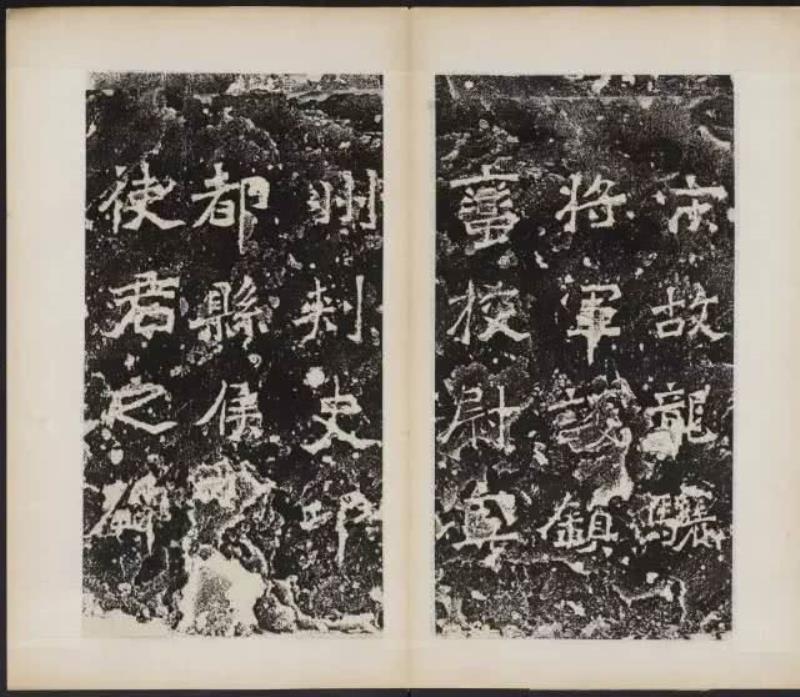 宋故龍驤
将軍護鎮
蠻校尉寧
州刾史邛
都縣侯
使君之碑